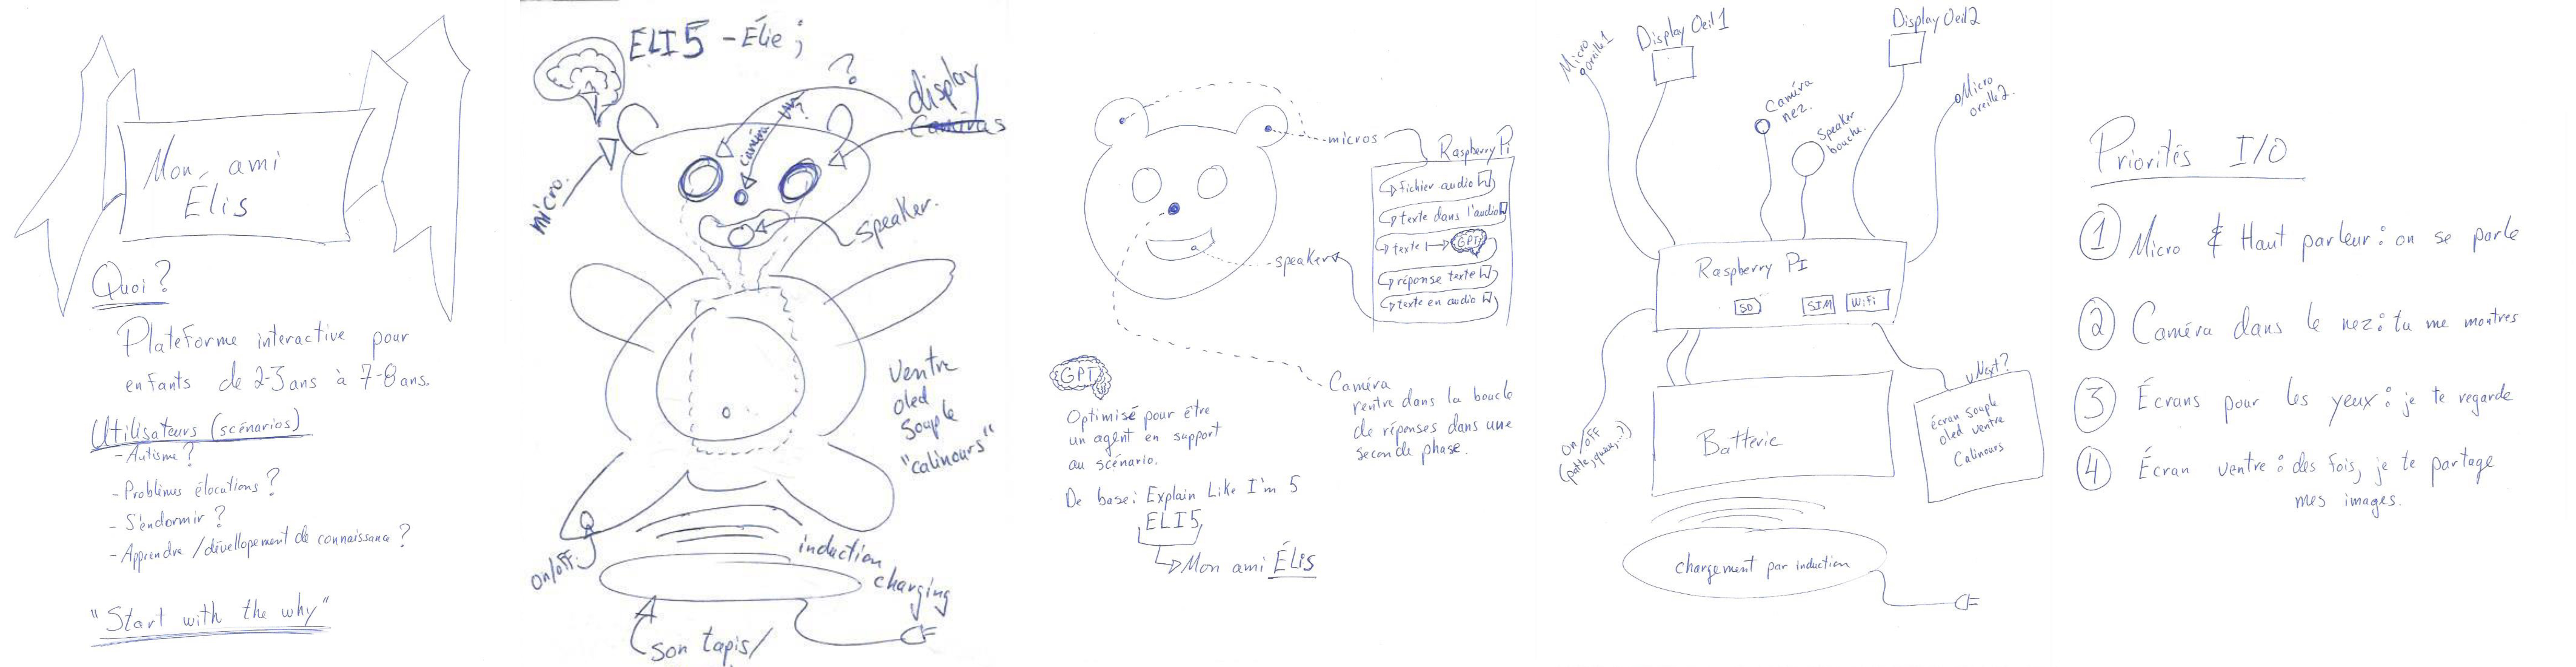 Mon ami
Élis
Quoi?
Plateforme interactive pour
enfants de 2-3 ans à 7-8 ans.
Utilisateurs (scénarios)
- Autisme?
- Problèmes élocutions?
- S'endormir?
- Apprendre / dévellopement de connaissance?
"Start with the why"
ELI5 - Élie;
?
display
Caméras
caméra
micro.
speaker.
ventre
oled
souple
"calinours"
on/off
induction
charging
son tapis/
micros
Raspberry Pi
fichier audio
texte dans l'audio
texte → GPT
réponse texte
texte en audio
speaker
GPT
Optimisé pour être
un agent en support
au scénario.
Caméra
rentre dans la boucle
de réponses dans une
seconde phase.
De base: Explain Like I'm 5
ELI5
Mon ami ÉLIS
Micro
oreille 1
Display Oeil 1
Display Oeil 2
Caméra
nez.
Speaker
bouche.
Micro
oreille 2.
Raspberry PI
SD
SIM
WiFi
on/off
(patte, queue, ..?)
Batterie
vNext?
écran souple
oled ventre
Calinours
chargement par induction
Priorités I/O
1 Micro & Haut parleur: on se parle
2 Caméra dans le nez: tu me montres
3 Écrans pour les yeux: je te regarde
4 Écran ventre: des fois, je te partage
mes images.